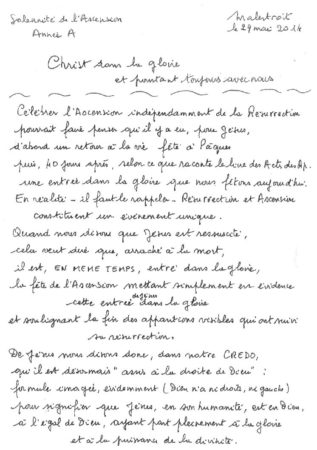 Solennité de l'Ascension
Année A
Malestroit
le 29 mai 2014
Christ dans la gloire
et pourtant toujours avec nous
Célébrer l'Ascension indépendamment de la Résurrection
pourrait faire penser qu'il y a eu, pour Jésus,
d'abord un retour à la vie fêté à Pâques
puis, 40 jours après, selon ce que raconte le livre des Actes des Ap.
une entrée dans la gloire que nous fêtons aujourd'hui.
En réalité - il faut le rappeler - Résurrection et Ascension
constituent un évènement unique.
Quand nous disons que Jésus est ressuscité,
cela veut dire que, arraché à la mort,
il est, EN MEME TEMPS, entré dans la gloire,
la fête de l'Ascension mettant simplement en évidence
cette entrée de Jésus dans la gloire
et soulignant la fin des apparitions visibles qui ont suivi
sa résurrection.
De Jésus nous disons donc, dans notre CREDO,
qu'il est désormais "assis à la droite de Dieu" :
formule imagée, évidemment (Dieu n'a ni droite, ni gauche)
pour signifier que Jésus, en son humanité, est en Dieu,
à l'égal de Dieu, ayant part pleinement à la gloire
et à la puissance de la divinité.